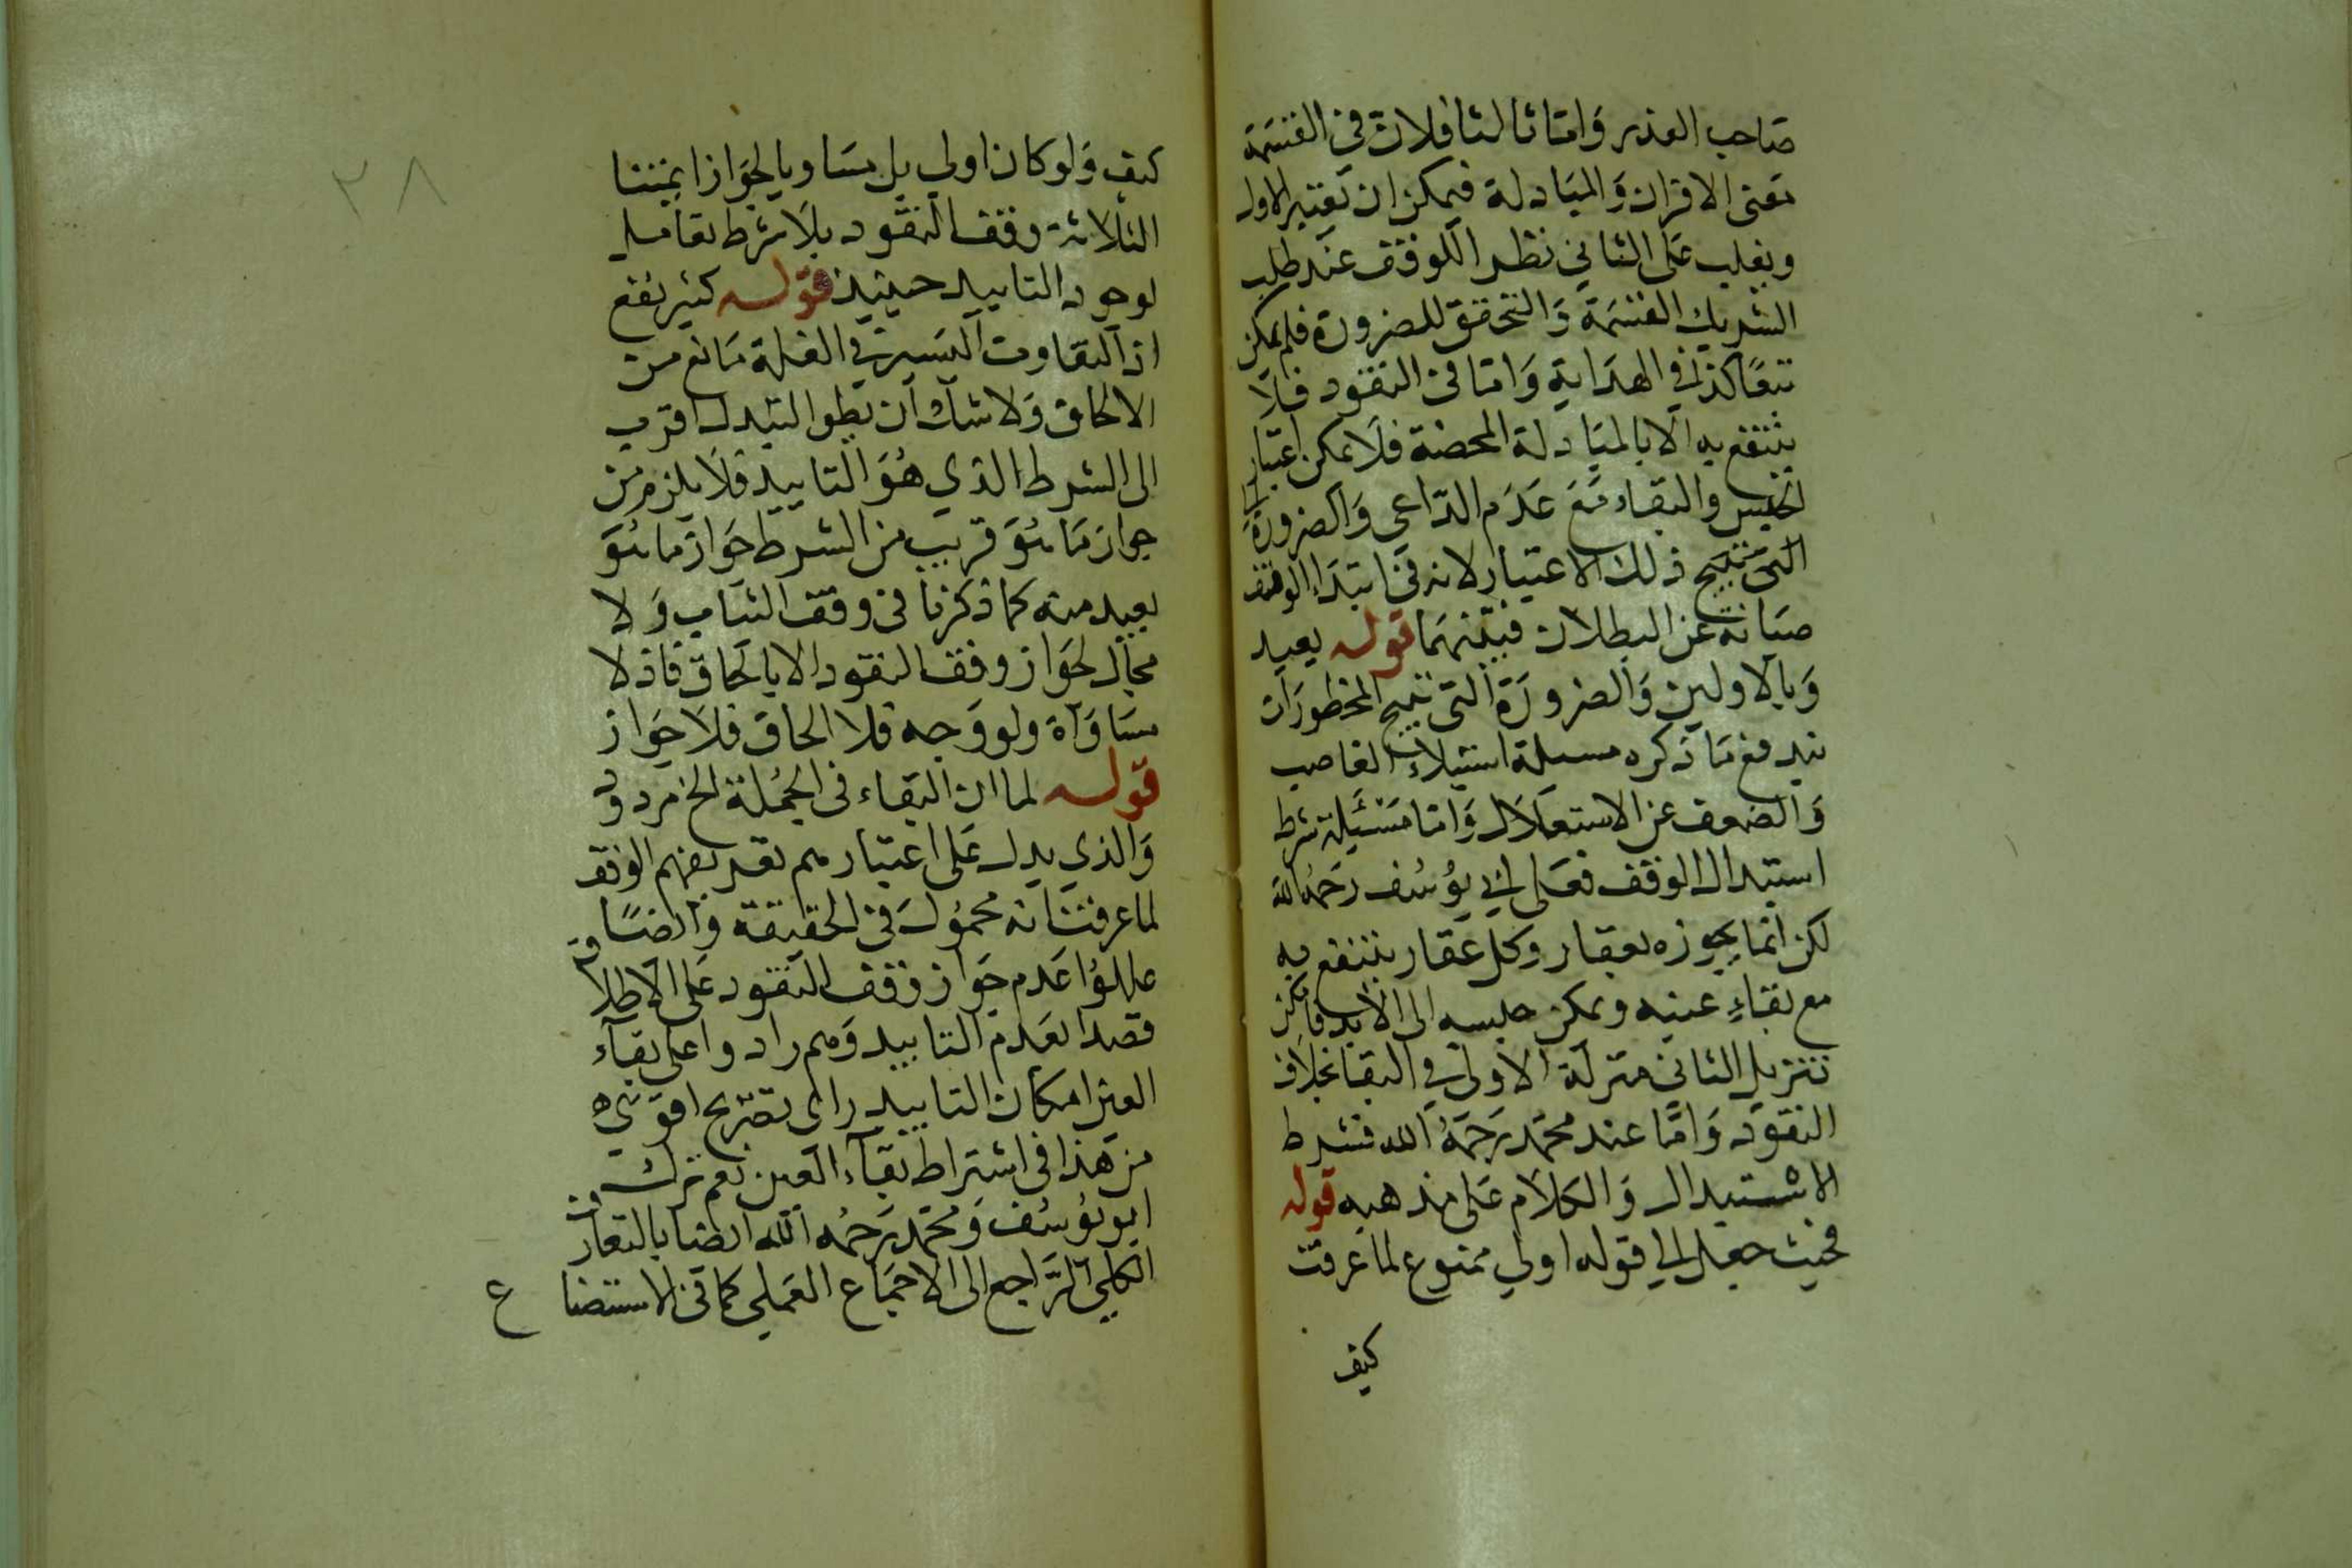 صاحب العذر وَامّا ثالثا فلان في القسمَة
مَعنى الافراز وَالمبَادلة فيمكن ان تعتبر الاول
ويغلب عَلى الثاني نظرا للوقف عند طلب
الشريك القسمَة وَالتحقق للضرورة فلم يمكن
تبعًا كذا في الهدَاية وَامّا في النقود فلا
ينتفع به الا بالمبَادلة المحضة فلا يمكن اعتبار
الحبس والبقاء مَع عَدَم الدّاعي وَالضرورة
التي تبيح ذلك الاعتبار لانه في ابتدَا الوقف
صيَانة عن البطلان فبَينهمَا قوله بعيد
وَبالاولين وَالضرورَة التي تبيح المحظورَات
يندفع مَا ذكره مسئلة استيلاء الغاصب
وَالضعف عن الاستغلَال وَامّا مَسْئَلة شرط
استبدال الوقف فعَلى ابي يوُسُف رَحمُه الله
لكن انما يجوزه بعقار وكل عقار ينتفع به
مع بقاءِ عينه ويمكن حبسه الى الابد فامكن
تنزيل الثاني منزلة الاولى في البقا بخلاف
النقود وَامَّا عند محمّد رَحمَهُ الله فشرط
الاستبدال وَالكلَام عَلى مذهبه قوله
فحيث جعل الى قوله اولى ممنوع لما عرفت
كيف
٣٨
كيف وَلو كان اولى بل مسَاويا لجوَاز ايمتنا
الثلاثة وقف النقود بلَا شرط تعامل
لوجود التابيد حينيذ قوله كثير نفع
اذ التفاوت اليَسير في الغلة مَانع من
الالحاق وَلا شك ان بطو التبدل اقرب
الى الشرط الذي هُوَ التابيد فلَا يلزم من
جواز مَا هُوَ قريب من الشرط جَواز ما هُوَ
بعيد منه كما ذكرنا في وقف الثيَاب وَلا
مجال لجوَاز وقف النقود الا بالحاق فاذ لا
مسَاوَاة ولو وَجه فلا الحاق فلَا جَواز
قوله لما ان البقاء في الجُملة الخ مردود
وَالذي يدل عَلى اعتبارهم بعد بعضهم الوقف
لما عرفت انه محمُول في الحقيقة وَايضًا
عللوُا عَدم جَواز وَقف النقود عَلى الاطلاق
قصدا لعَدم التابيد وَهم رادوا على بقاء
العين امكان التابيد راى تصريح اقوى
من هَذا في اشتراط بقاء العين نعم ترك
ابو يوُسُف وَمحَمّد رَحمُه الله ايضا بالتعارف
الكلي الرَّاجع الى الاجمَاع العَملي كما في الاستصناع